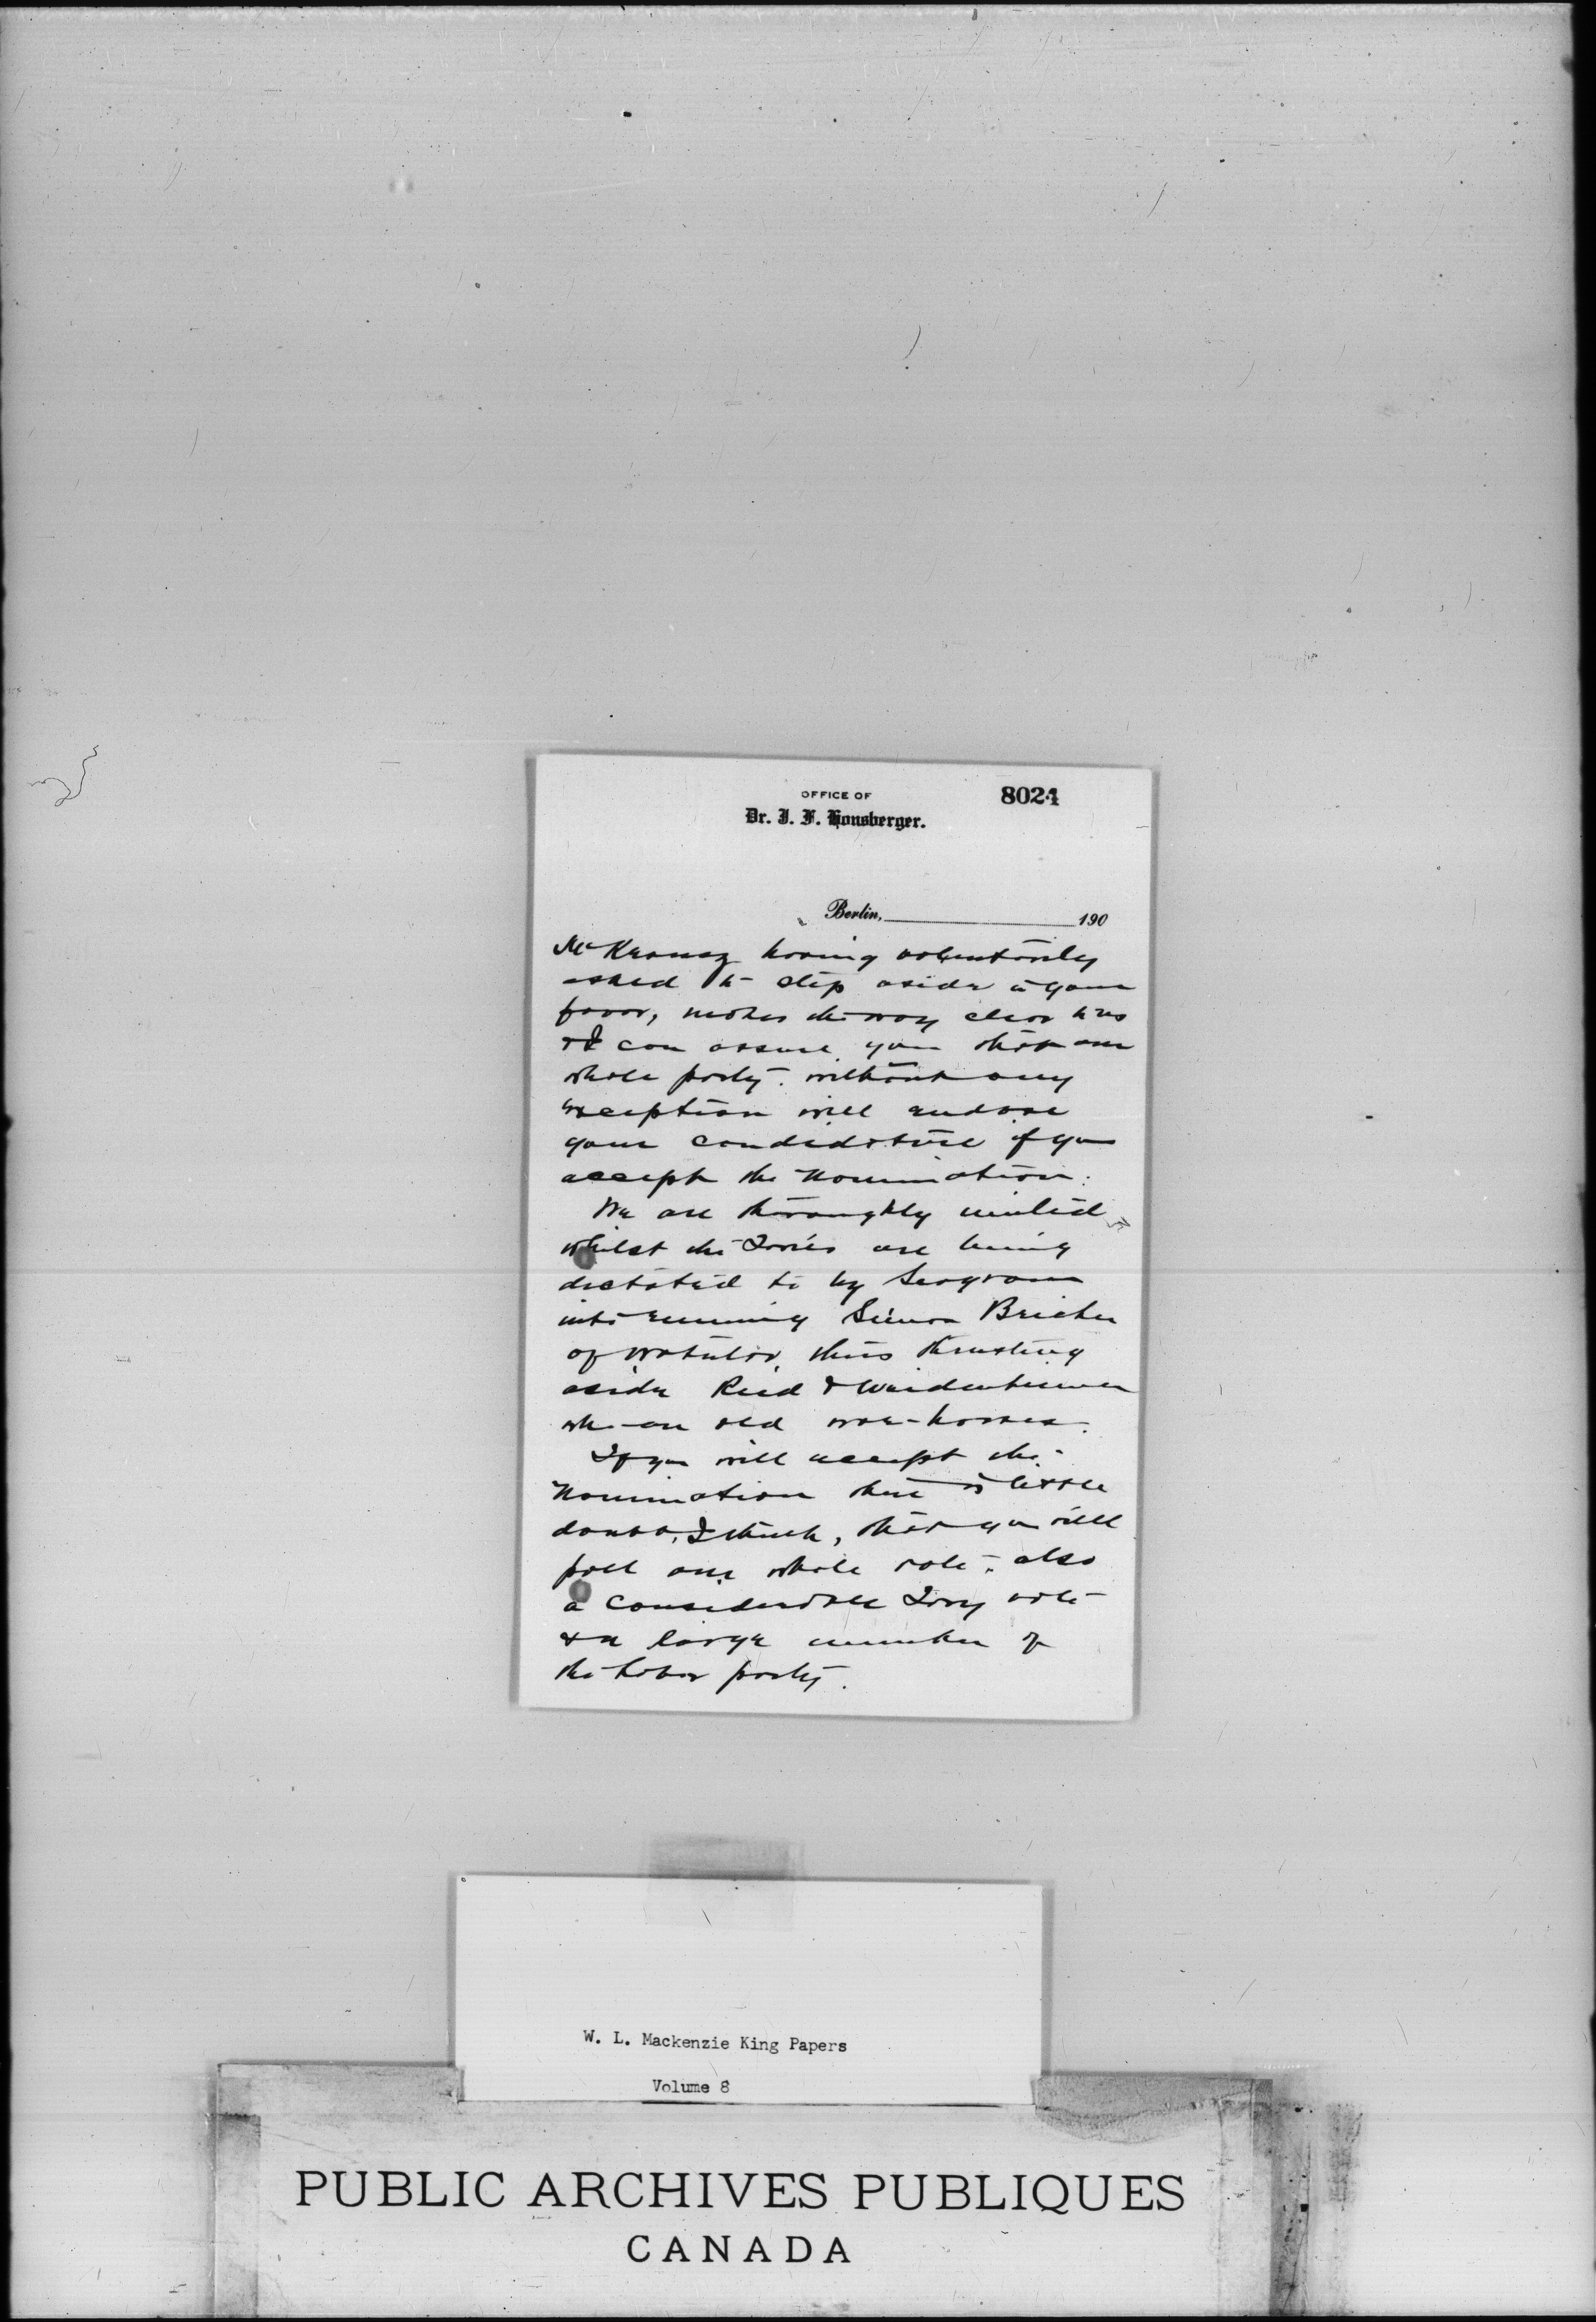 OFFICE OF
8024
Dr. J. F. Honsberger.
Berlin, 190
Mr Krausz having voluntarily
asked to step aside in your
favor, makes the way clear to us
& I can assure you that our
whole party without any
exception will endorse
your candidature if you
accept the nomination.
We are thoroughly united
whilst the Tories are being
dictated to by Seagram
into running Simon Bricker
of Waterloo, thus thrusting
aside Reid & Weidenhammer
who are old war-horses.
If you will accept the
nomination there is little
doubt, I think, that you will
poll our whole vote, also
a considerable Tory vote
& a large number of
the Labor party.
W. L. Mackenzie King Papers
Volume 8
PUBLIC ARCHIVES PUBLIQUES
CANADA